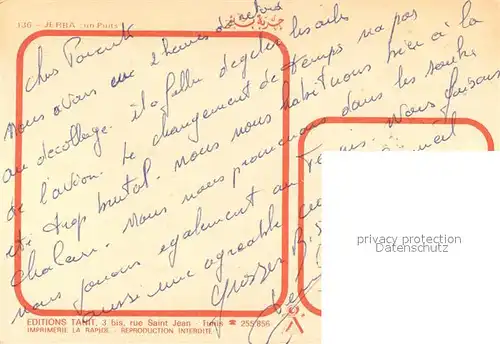 136 - JERBA : un Puits جربة بئر
Chers Parents
Nous avons eu 2 heures de retard
au décollage. il a fallu dégeler les ailes
de l'avion. Le changement de temps n'a pas
été trop brutal. Nous nous habituons bien à la
chaleur. Nous nous promenons dans les souks
nous jouons également au Tennis. Nous faisons
aussi une agréable
Grosses B
privacy protection
Datenschutz
EDITIONS TANIT, 3 bis, rue Saint Jean - Tunis ☎ 255 856
IMPRIMERIE LA RAPIDE - REPRODUCTION INTERDITE